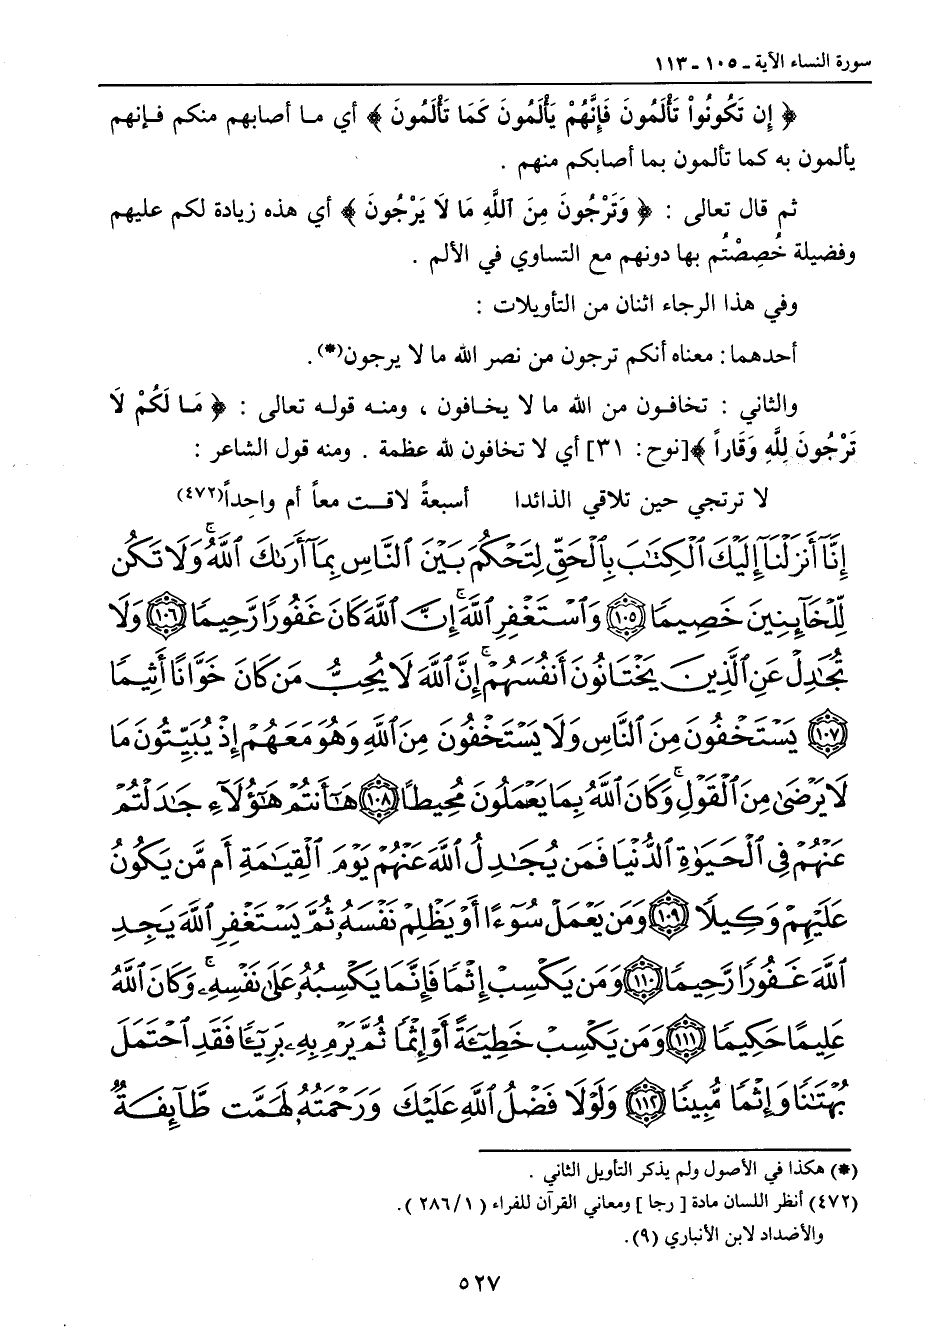 سورة النساء الآية ـ ١٠٥ ـ ١١٣
﴿ إِن تَكُونُواْ تَأْلَمُونَ فَإِنَّهُمْ يَأْلَمُونَ كَمَا تَأْلَمُونَ ﴾ أي مـا أصابهم منكم فـإنهم
يألمون به كما تألمون بما أصابكم منهم .
ثم قال تعالى : ﴿ وَتَرْجُونَ مِنَ ٱللَّهِ مَا لَا يَرْجُونَ ﴾ أي هذه زيادة لكم عليهم
وفضيلة خُصِصْتُم بها دونهم مع التساوي في الألم .
وفي هذا الرجاء اثنان من التأويلات :
أحدهما : معناه أنكم ترجون من نصر الله ما لا يرجون(*).
والثاني : تخافـون من الله ما لا يخـافون ، ومنـه قولـه تعالى : ﴿ مَـا لَكُمْ لَا
تَرْجُونَ لِلَّهِ وَقَاراً ﴾[نوح: ٣١] أي لا تخافون لله عظمة . ومنه قول الشاعر :
لا ترتجي حين تلاقي الذائدا أسبعةً لاقـت معاً أم واحِداً(٤٧٢)
إِنَّآ أَنزَلْنَآ إِلَيْكَ ٱلْكِتَٰبَ بِٱلْحَقِّ لِتَحْكُمَ بَيْنَ ٱلنَّاسِ بِمَآ أَرَىٰكَ ٱللَّهُ ۚ وَلَا تَكُن
لِّلْخَآئِنِينَ خَصِيمًا ١٠٥ وَٱسْتَغْفِرِ ٱللَّهَ ۖ إِنَّ ٱللَّهَ كَانَ غَفُورًا رَّحِيمًا ١٠٦ وَلَا
تُجَٰدِلْ عَنِ ٱلَّذِينَ يَخْتَانُونَ أَنفُسَهُمْ ۚ إِنَّ ٱللَّهَ لَا يُحِبُّ مَن كَانَ خَوَّانًا أَثِيمًا
١٠٧ يَسْتَخْفُونَ مِنَ ٱلنَّاسِ وَلَا يَسْتَخْفُونَ مِنَ ٱللَّهِ وَهُوَ مَعَهُمْ إِذْ يُبَيِّتُونَ مَا
لَا يَرْضَىٰ مِنَ ٱلْقَوْلِ ۚ وَكَانَ ٱللَّهُ بِمَا يَعْمَلُونَ مُحِيطًا ١٠٨ هَٰٓأَنتُمْ هَٰٓؤُلَآءِ جَٰدَلْتُمْ
عَنْهُمْ فِى ٱلْحَيَوٰةِ ٱلدُّنْيَا فَمَن يُجَٰدِلُ ٱللَّهَ عَنْهُمْ يَوْمَ ٱلْقِيَٰمَةِ أَم مَّن يَكُونُ
عَلَيْهِمْ وَكِيلًا ١٠٩ وَمَن يَعْمَلْ سُوٓءًا أَوْ يَظْلِمْ نَفْسَهُۥ ثُمَّ يَسْتَغْفِرِ ٱللَّهَ يَجِدِ
ٱللَّهَ غَفُورًا رَّحِيمًا ١١٠ وَمَن يَكْسِبْ إِثْمًا فَإِنَّمَا يَكْسِبُهُۥ عَلَىٰ نَفْسِهِۦ ۚ وَكَانَ ٱللَّهُ
عَلِيمًا حَكِيمًا ١١١ وَمَن يَكْسِبْ خَطِيٓـَٔةً أَوْ إِثْمًا ثُمَّ يَرْمِ بِهِۦ بَرِيٓـًٔا فَقَدِ ٱحْتَمَلَ
بُهْتَٰنًا وَإِثْمًا مُّبِينًا ١١٢ وَلَوْلَا فَضْلُ ٱللَّهِ عَلَيْكَ وَرَحْمَتُهُۥ لَهَمَّت طَّآئِفَةٌ
(*) هكذا في الأصول ولم يذكر التأويل الثاني .
(٤٧٢) أنظر اللسان مادة [ رجا ] ومعاني القرآن للفراء ( ١/ ٢٨٦ ).
والأضداد لابن الأنباري (٩).
٥٢٧